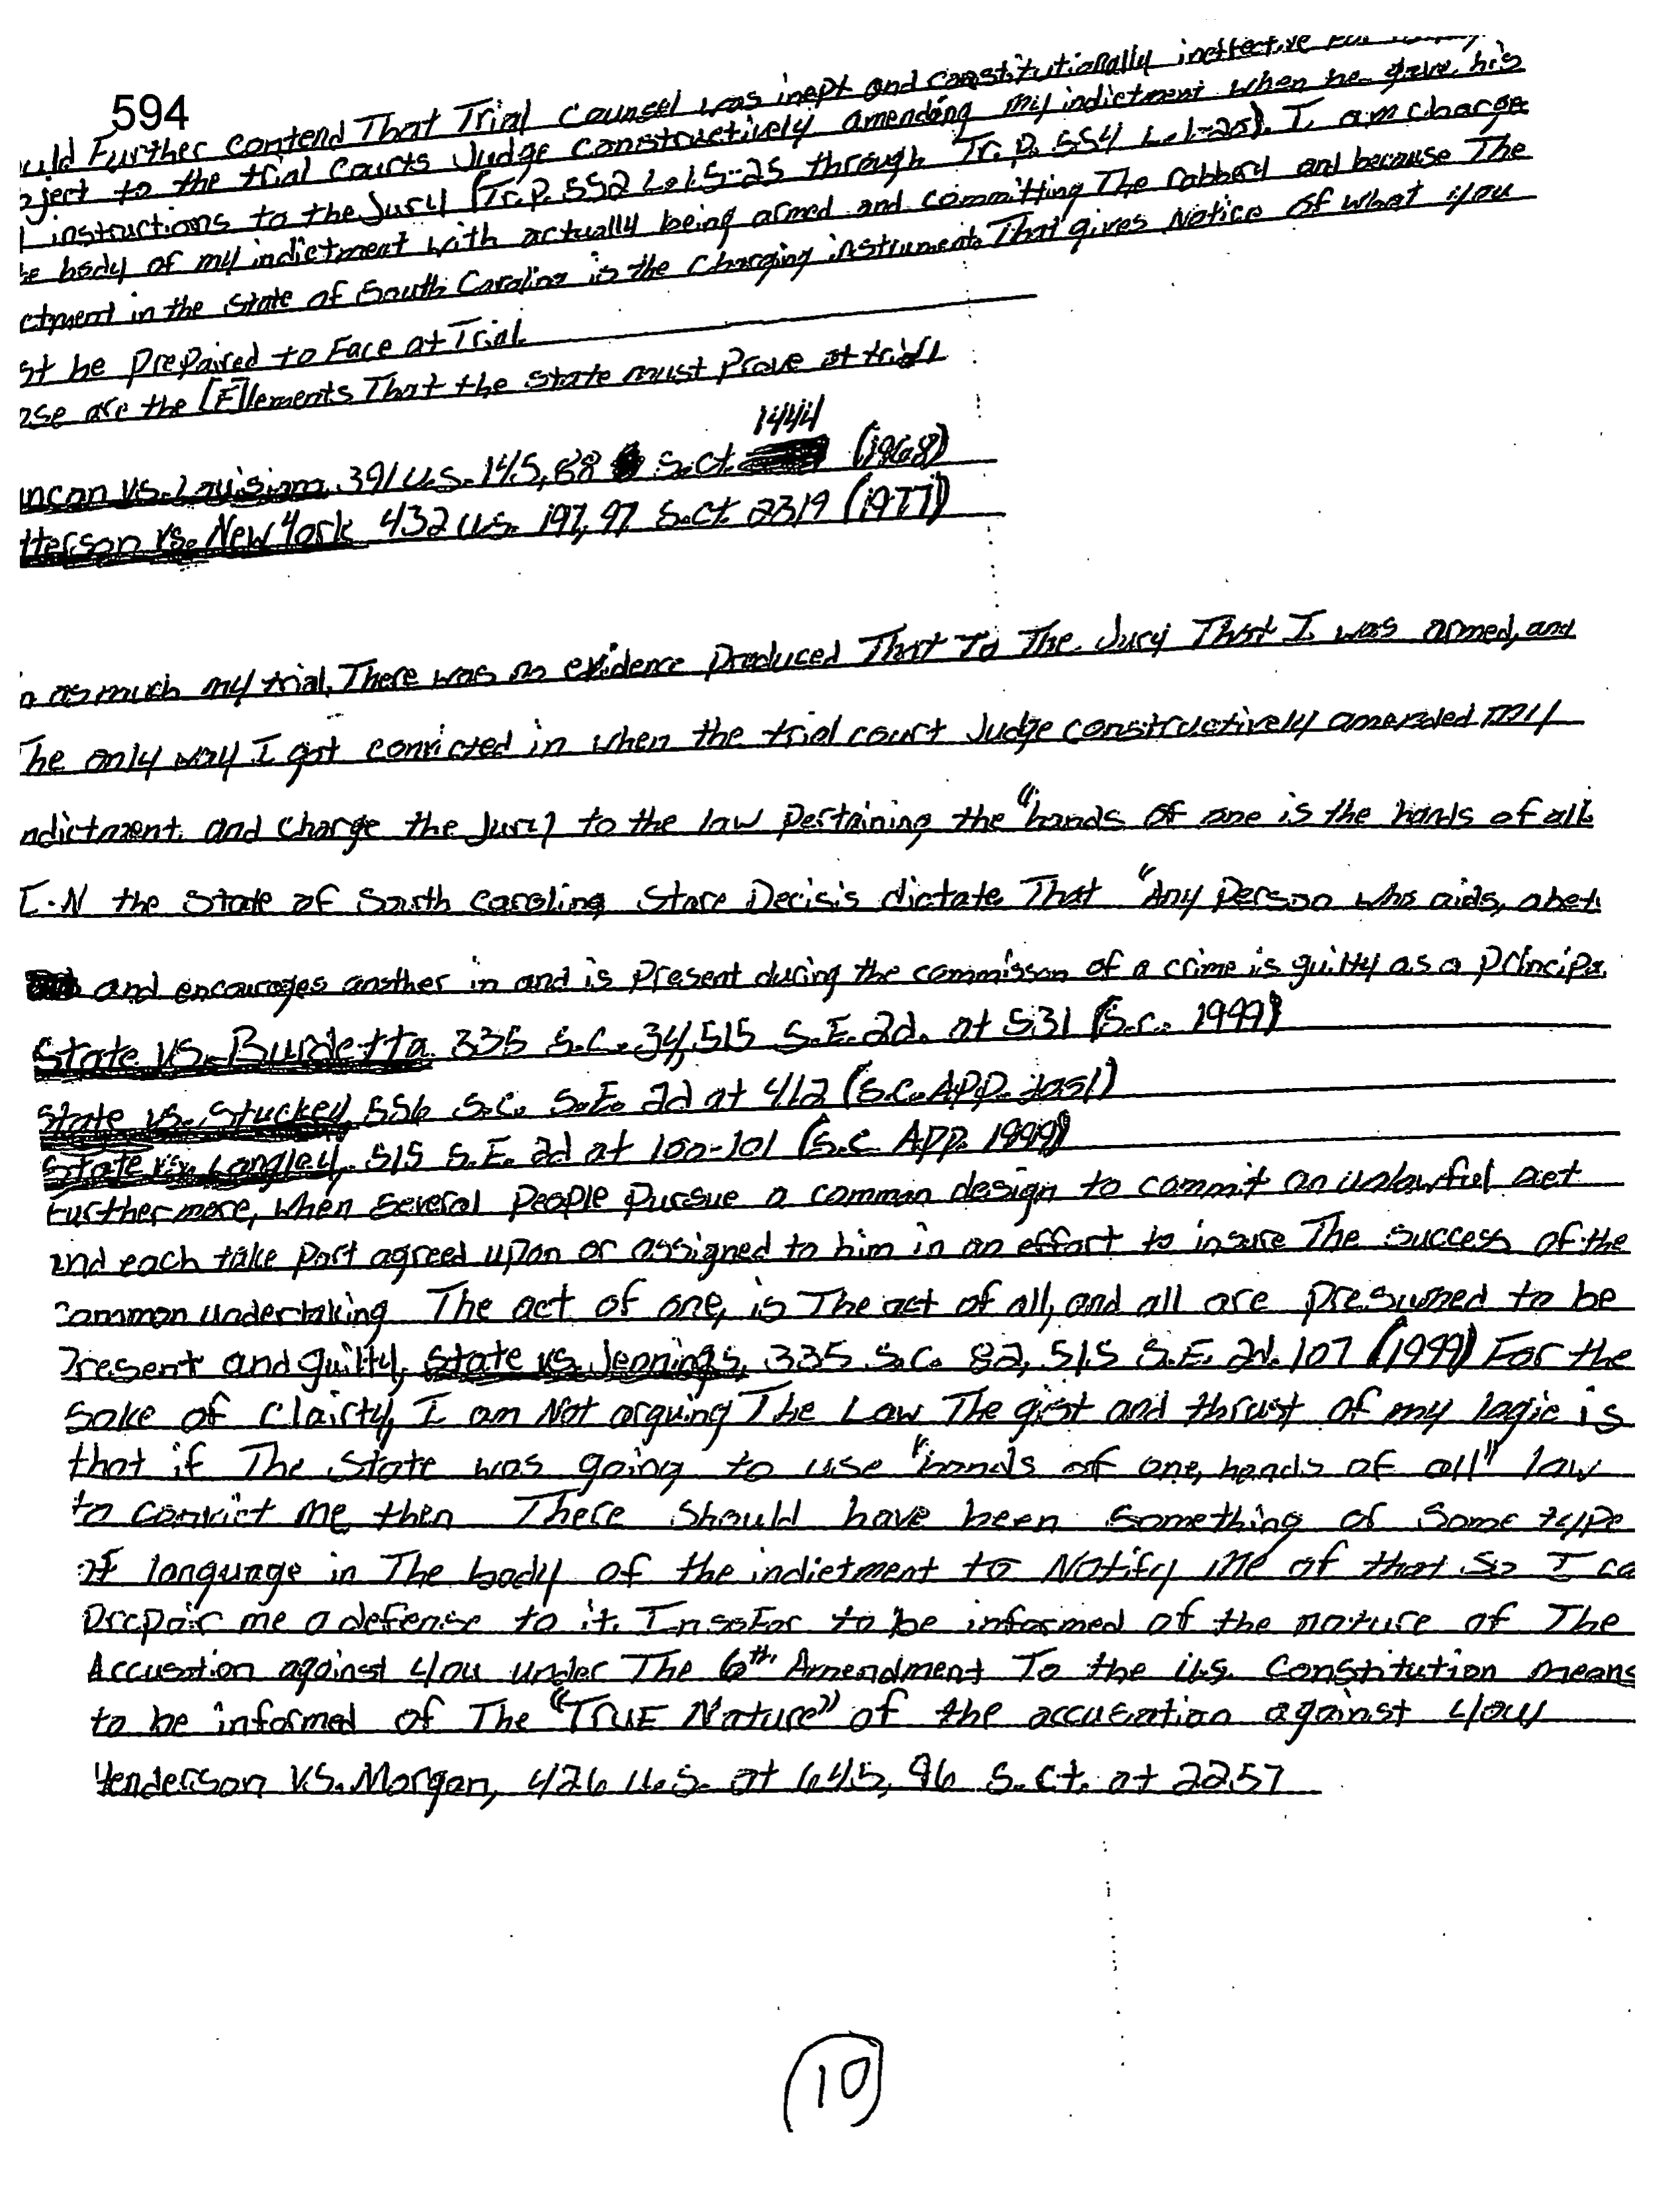 594
uld Further contend That Trial Counsel was inept and constitutionally ineffective For
bject to the trial Courts Judge Constructively amending my indictment when he gave his
l instructions to the Jury (Tr. P. 552 L. 15-25 through Tr. P. 554 L. 1-25). I am charge
e body of my indictment with actually being armed and committing The robbery and because The
ctment in the State of South Carolina is the Charging instruments That gives Notice of what you
st be Prepaired to Face at Trial.
ese are the [E]lements That the state must Prove at trial
uncan vs. Louisiana 391 U.S. 145, 88 S.Ct. 1444 (1968)
tterson vs. New York 432 U.S. 197, 97 S.Ct. 2319 (1977)
n as much my trial, There was no evidence Produced That To The Jury That I was armed, and
The only way I got convicted in when the trial court Judge constructively amended my
ndictment. and charge the Jury to the law Pertaining the "hands of one is the hands of all.
I.N the State of South Carolina, Stare Decisis dictate That "Any Person who aids, abet
and encourages another in and is Present during the commisson of a crime is guilty as a principa
State vs. Burdetta 335 S.C. 34, 515 S.E. 2d. at 531 (S.C. 1999)
State vs. Stuckey, 556 S.C. S.E. 2d at 412 (S.C. APP. 2001)
State vs. Langley, 515 S.E. 2d at 100-101 (S.C. APP. 1999)
Furthermore, when several People Pursue a common design to commit an unlawful act
and each take Part agreed upon or assigned to him in an effort to insure The success of the
common undertaking The act of one, is The act of all, and all are Presumed to be
Present and guilty, State vs. Jennings, 335 S.C. 82, 515 S.E. 2d. 107 (1999) For the
Sake of Clairty, I am Not arguing The Law The gist and thrust of my logic is
that if The State was going to use "hands of one, hands of all" law
to convict me then There should have been something of some type
of language in The body of the indictment to Notify me of that so I co
Prepair me a defense to it. InsoFar to be informed of the nature of The
Accusation against you under The 6th Amendment To the U.S. Constitution means
to be informed of The "TRUE Nature" of the accusation against you
Henderson V.S. Morgan, 426 U.S. at 645, 96 S.Ct. at 2257
10